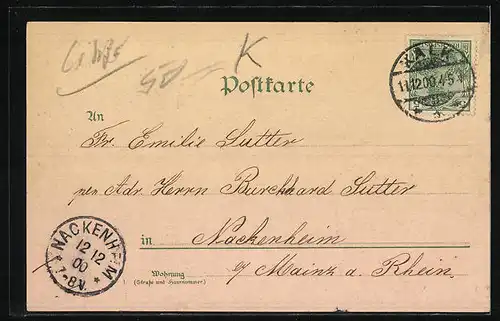 K
Postkarte
11.12.00.4-5N
An
Fr. Emilie Sutter
per Adr. Herrn Burckhard Sutter
in Nackenheim
b/ Mainz a. Rhein.
Wohnung
(Straße und Hausnummer)
NACKENHEIM
12 12
00
7-8V.